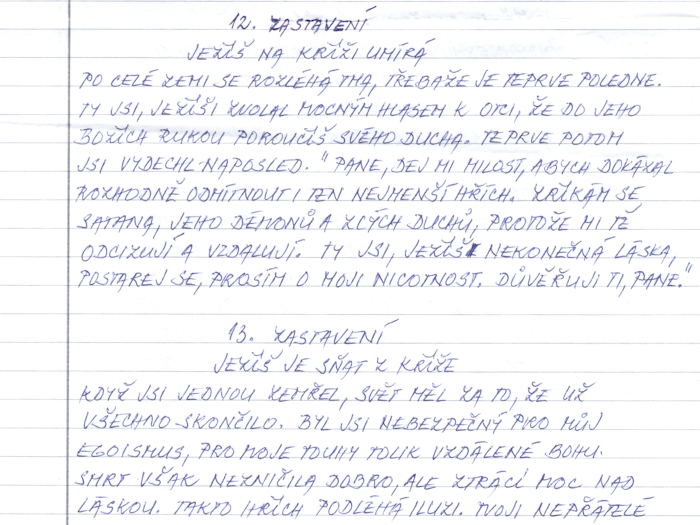 12. ZASTAVENÍ
JEŽÍŠ NA KŘÍŽI UMÍRÁ
PO CELÉ ZEMI SE ROZLÉHÁ TMA, TŘEBAŽE JE TEPRVE POLEDNE.
TY JSI, JEŽÍŠI ZVOLAL MOCNÝM HLASEM K OTCI, ŽE DO JEHO
BOŽÍCH RUKOU POROUČÍŠ SVÉHO DUCHA. TEPRVE POTOM
JSI VYDECHL NAPOSLED. "PANE, DEJ MI MILOST, ABYCH DOKÁZAL
ROZHODNĚ ODMÍTNOUT I TEN NEJMENŠÍ HŘÍCH. ZŘÍKÁM SE
SATANA, JEHO DÉMONŮ A ZLÝCH DUCHŮ, PROTOŽE MI TĚ
ODCIZUJÍ A VZDALUJÍ. TY JSI, JEŽÍŠI NEKONEČNÁ LÁSKA,
POSTAREJ SE, PROSÍM O MOJI NICOTNOST. DŮVĚŘUJI TI, PANE."
13. ZASTAVENÍ
JEŽÍŠ JE SŇAT Z KŘÍŽE
KDYŽ JSI JEDNOU ZEMŘEL, SVĚT MĚL ZA TO, ŽE UŽ
VŠECHNO SKONČILO. BYL JSI NEBEZPEČNÝ PRO MŮJ
EGOISMUS, PRO MOJE TOUHY TOLIK VZDÁLENÉ BOHU.
SMRT VŠAK NEZNIČILA DOBRO, ALE ZTRÁCÍ MOC NAD
LÁSKOU. TAKTO HŘÍCH PODLÉHÁ ILUZI. TVOJI NEPŘÁTELÉ